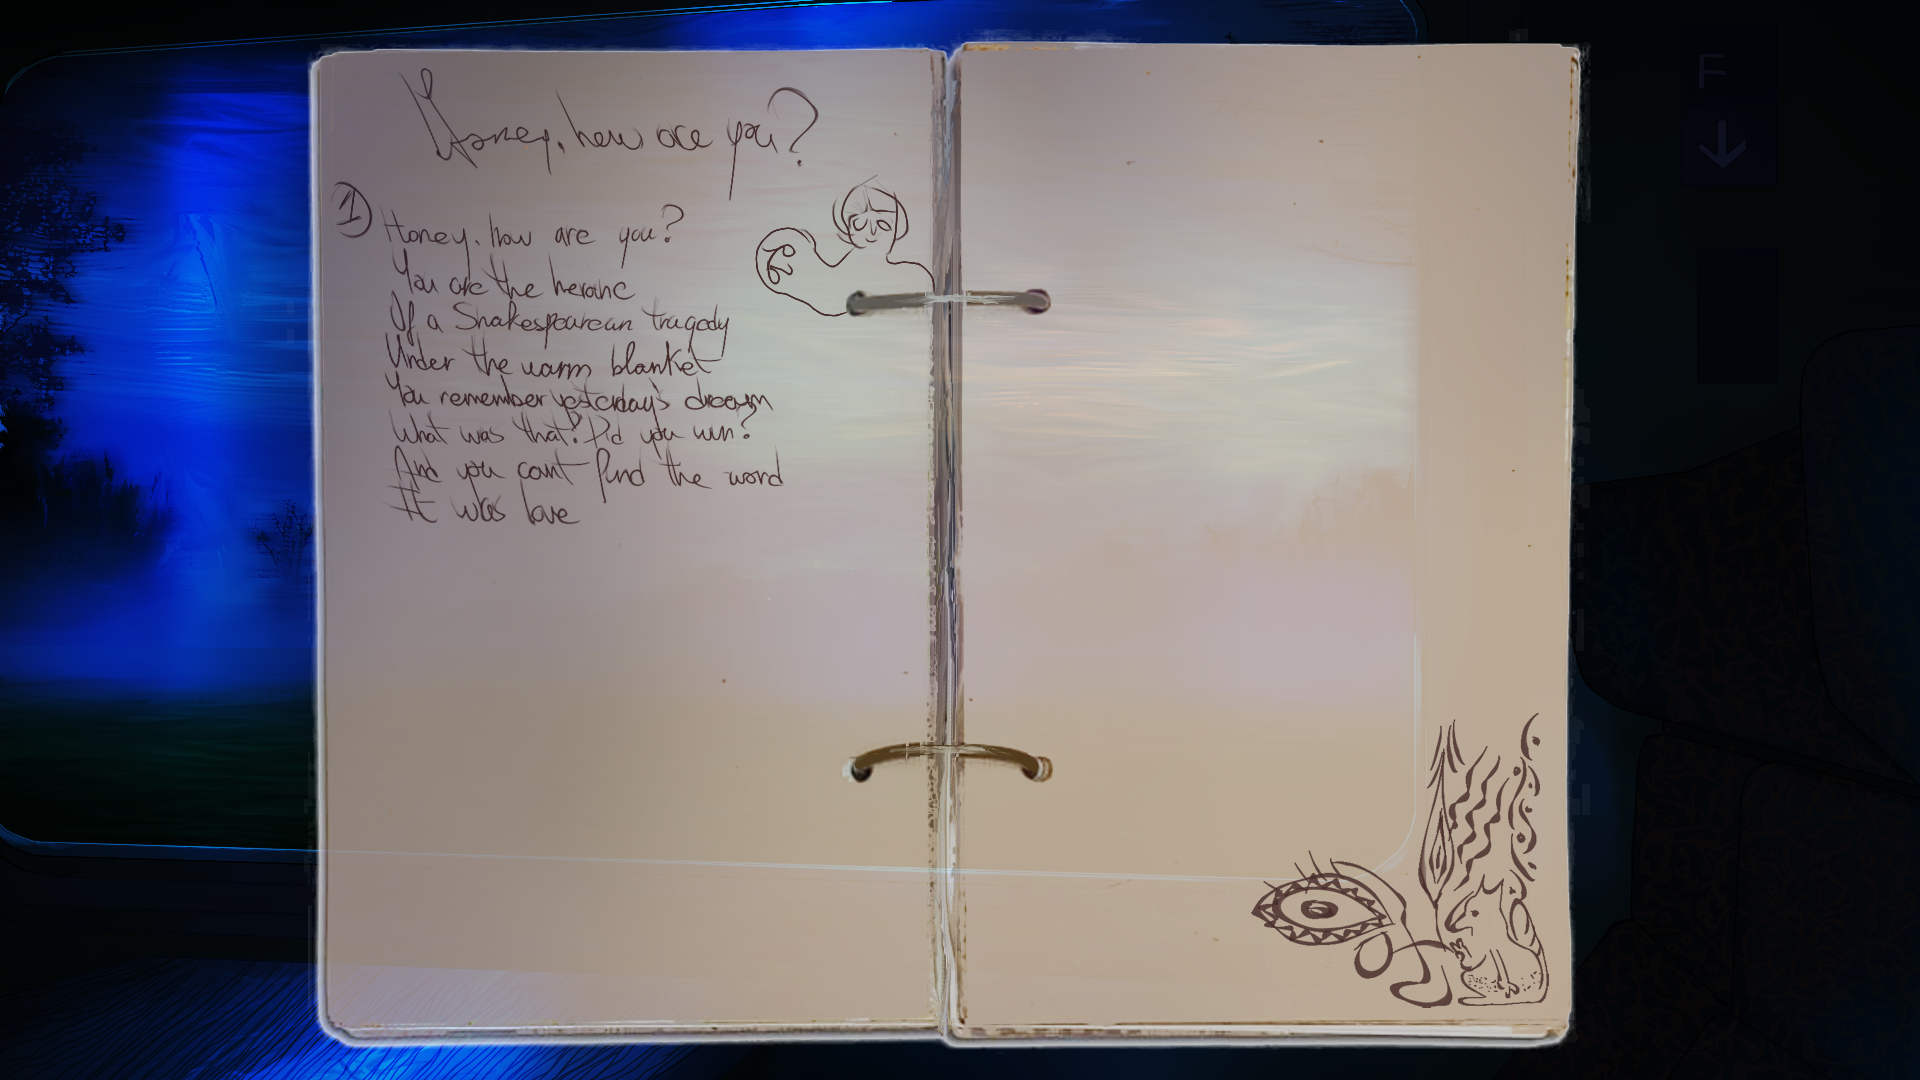 Honey, how are you?
1
Honey, how are you?
You are the heroine
Of a Shakespearean tragedy
Under the warm blanket
You remember yesterday's dream
What was that? Did you win?
And you can't find the word
It was love
F